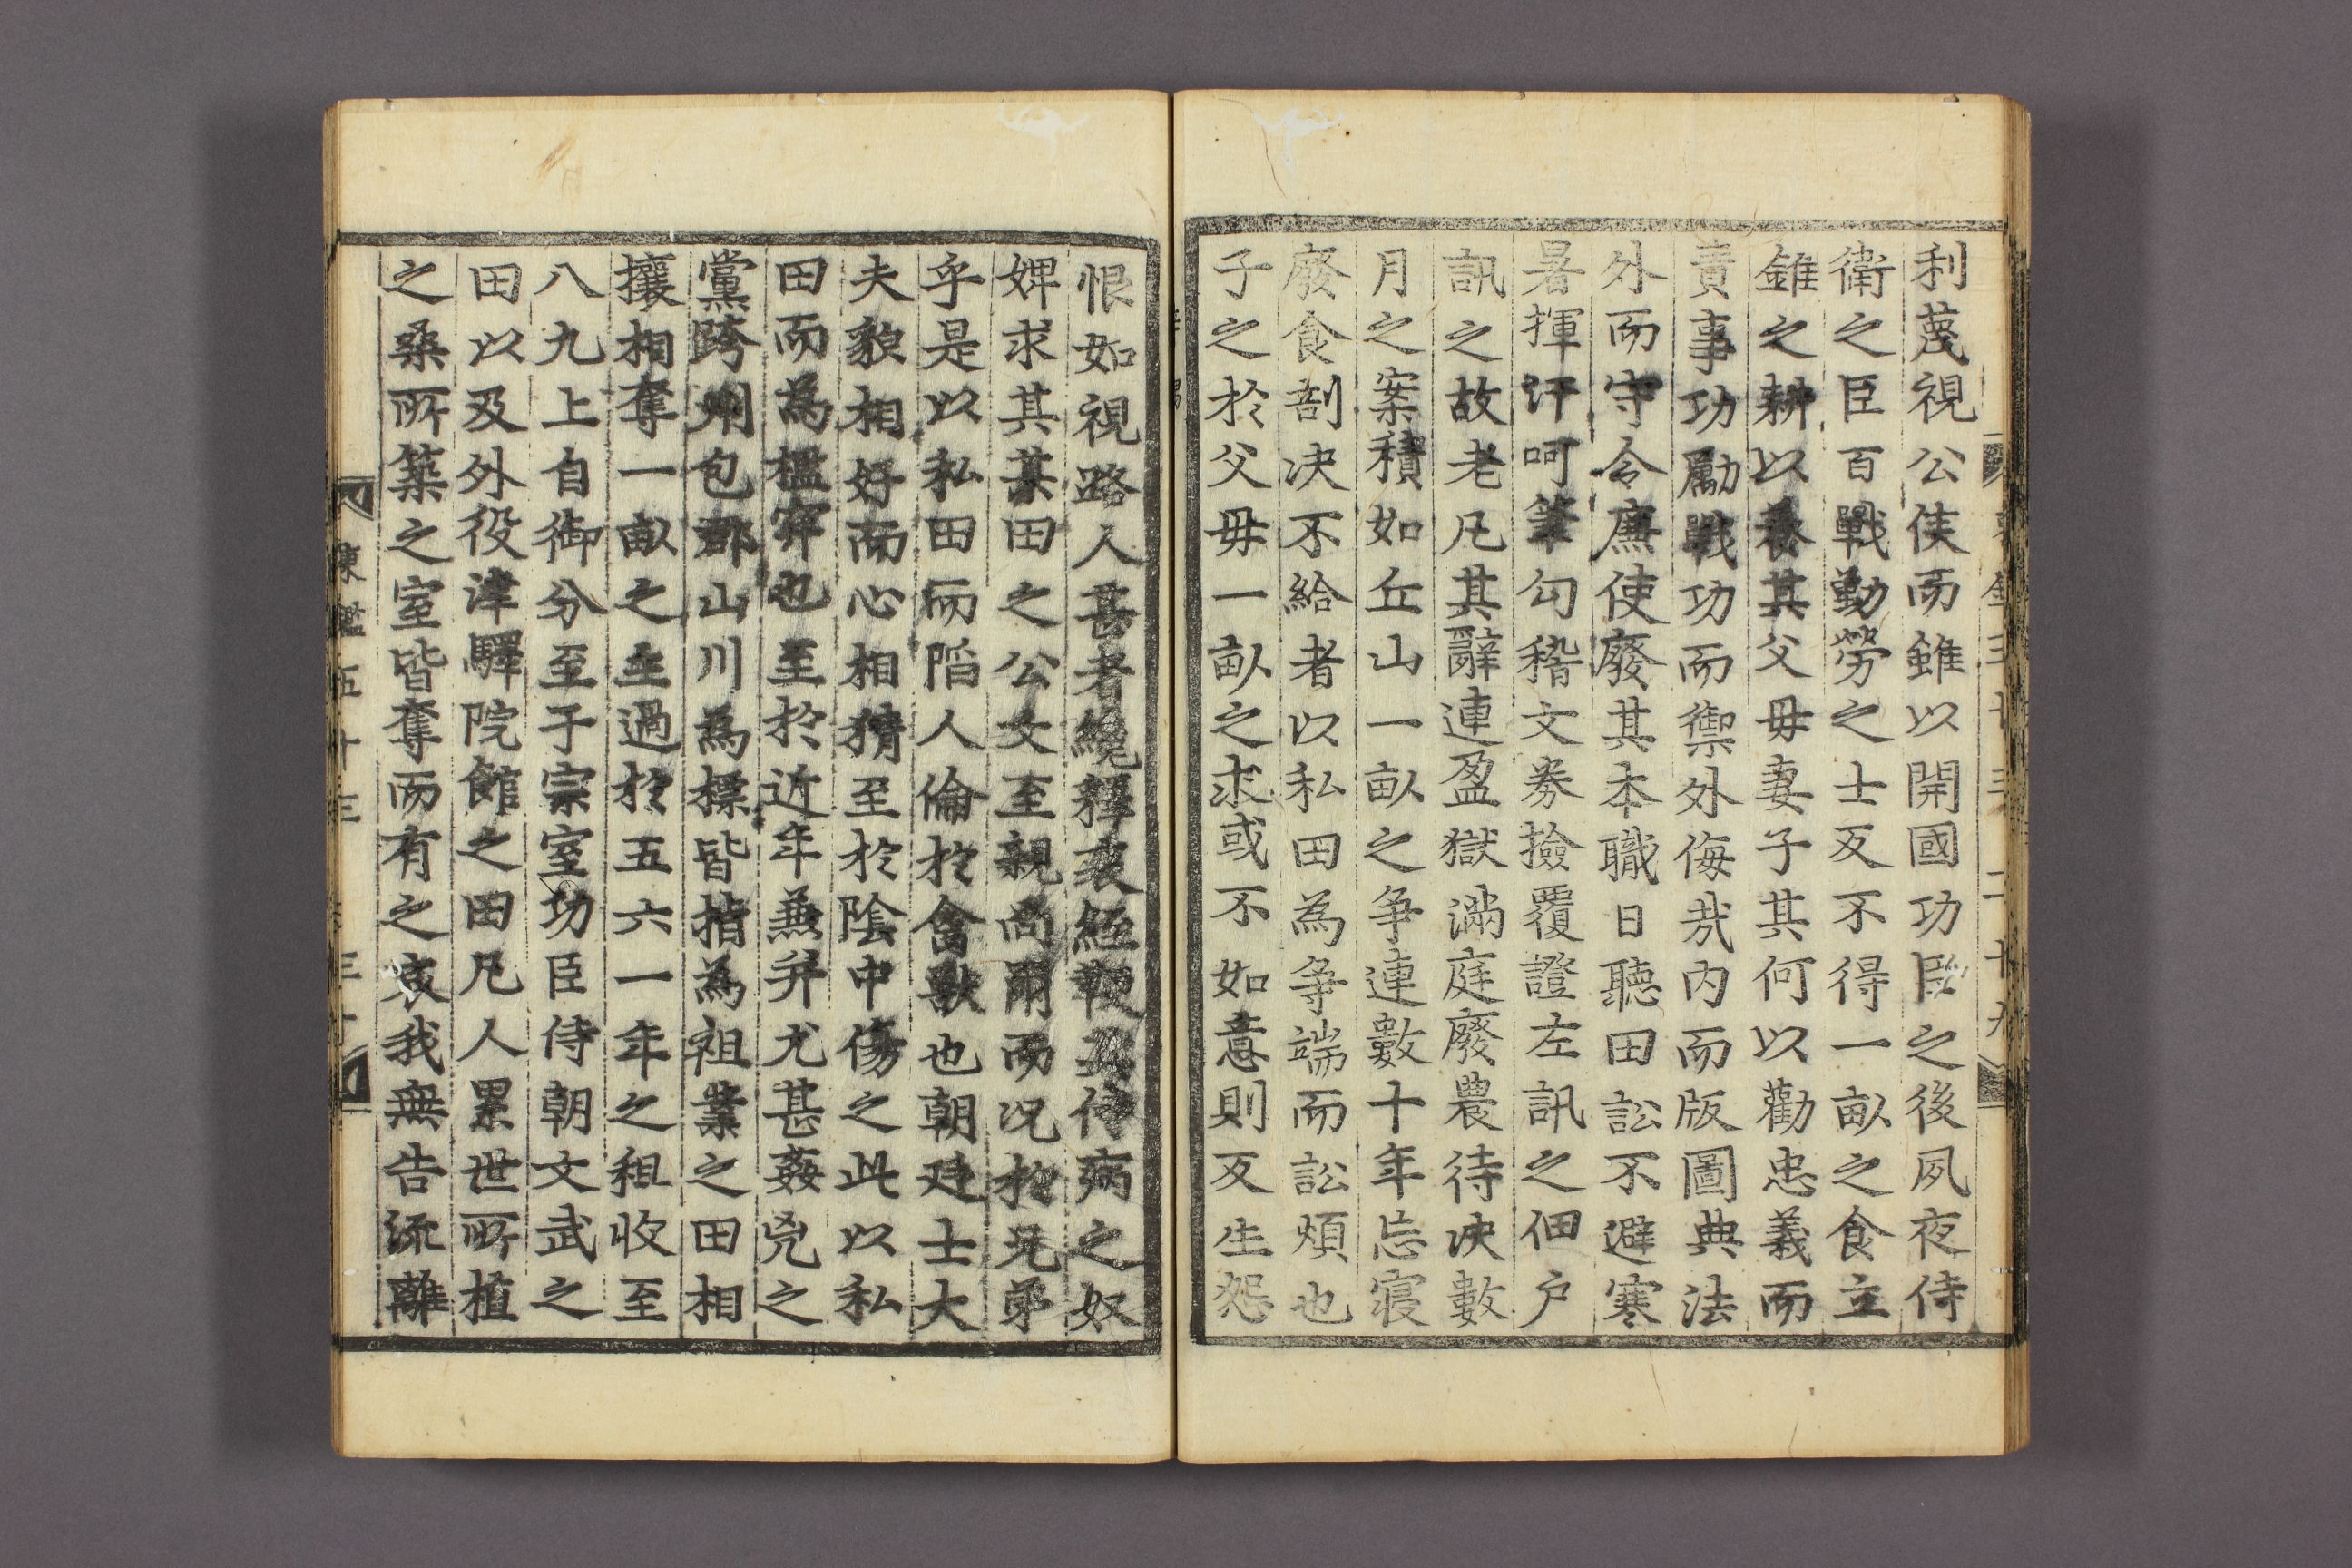 利蔑視公侯而雖以開國功臣之後夙夜侍
衛之臣百戰勤勞之士反不得一畝之食立
錐之耕以養其父母妻子其何以勸忠義而
責事功勵戰功而禦外侮㢤内而版圖典法
外而守令廉使廢其本職日聽田訟不避寒
暑揮汗呵筆勾稽文券撿覆證左訊之佃户
訊之故老凡其辭連盈獄滿庭廢農待决數
月之案積如丘山一畝之争連數十年忘寝
廢食剖决不給者以私田為争端而訟煩也
子之於父母一畝之求或不如意則反生怨
恨如視路人甚者纔釋衰絰鞭其侍病之奴
婢求其某田之公文至親尚爾而况於兄弟
乎是以私田而陷人倫於禽獸也朝廷士大
夫貌相好而心相猜至於陰中傷之此以私
田而為檻穽也至於近年兼并尤甚姦兇之
黨跨州包郡山川為標皆指為祖業之田相
攘相奪一畝之主過於五六一年之租收至
八九上自御分至于宗室功臣侍朝文武之
田以及外役津驛院館之田凡人累世所植
之桑所築之室皆奪而有之哀我無告流離
東鑑五十三